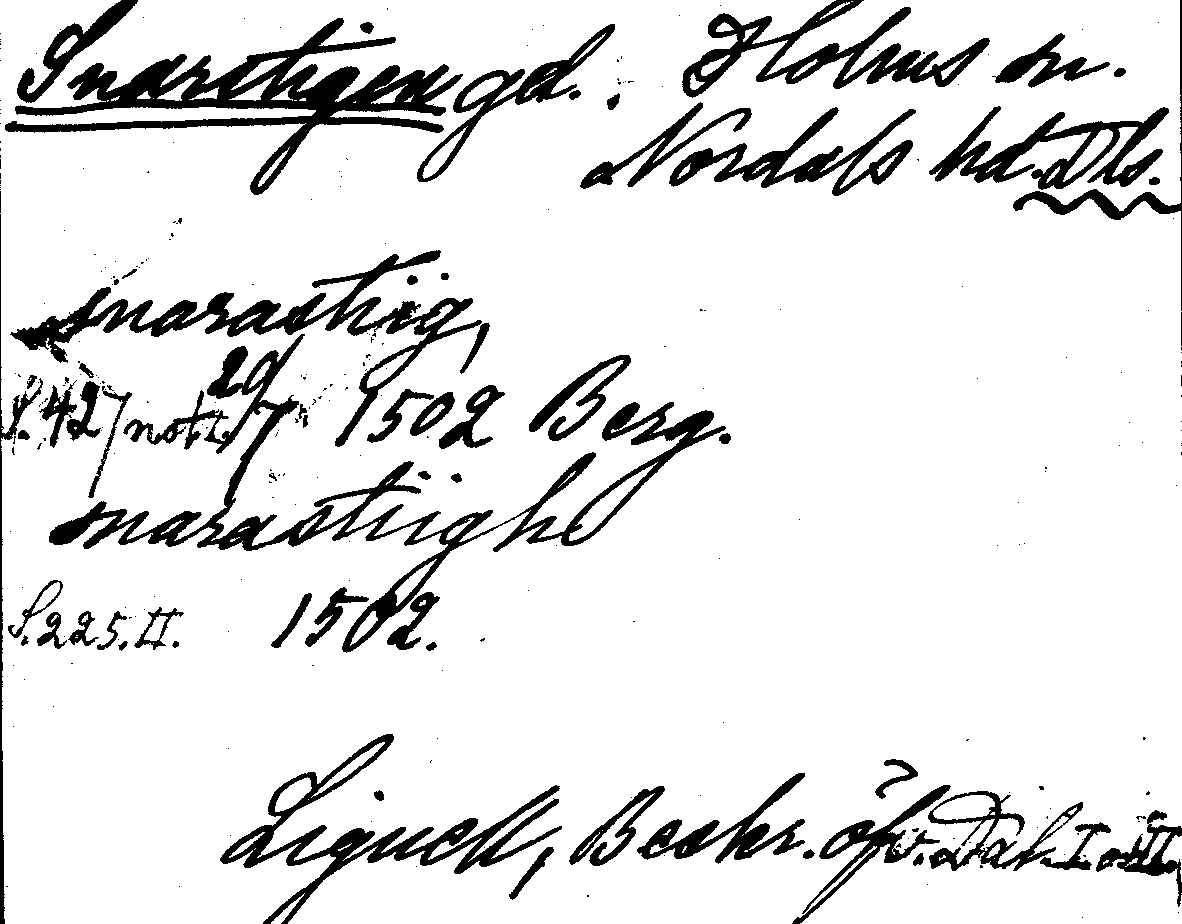 Snarstigen gd. Holms sn.
Nordals hd. Dls.
snarastiig,
S. 427 not 1. 29/7 1502 Berg.
snarastiighe
S. 225. II. 1502.
Lignell, Beskr. öfv. Dal. I. o. II.